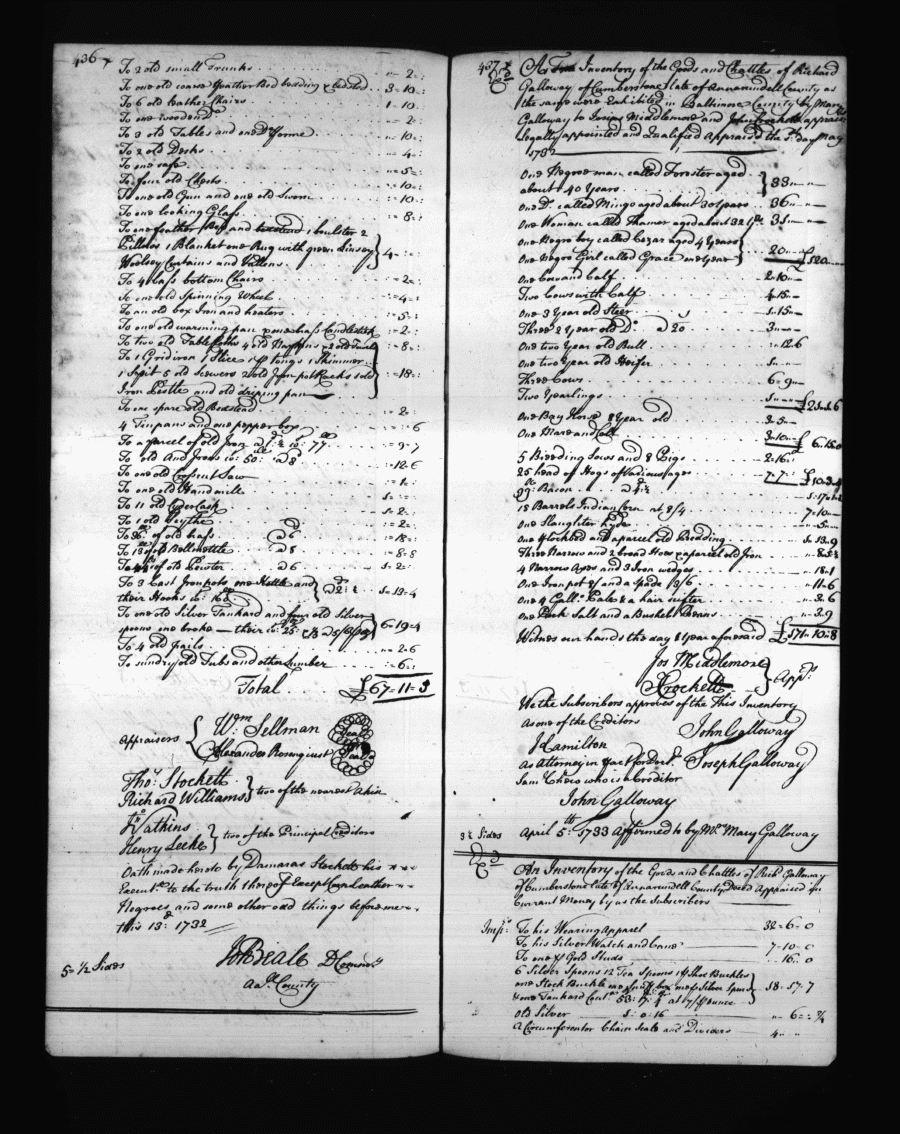 436
To 2 old small Trunks .. = 2 ..
To one old coarse feather Bed beading & bedsted 3 = 10 ..
To 6 old leather Chairs 1 = 10 ..
To one wooden Dº .. = 2 ..
To 3 old Tables and one Dº forme .. = 10 ..
To 2 old Desks .. = 4 ..
To one safe .. = 5 ..
To four old Chests .. = 10 ..
To one old Gun and one old Sword .. = 10 ..
To one looking Glass .. = 8 ..
To one feather Bed and bedstead 1 boulster 2
Pillows 1 Blanket one Rug with green Linsey
Woolsey Curtains and Vallens 4 = ..
To 4 bass bottom Chairs .. = 2 ..
To one old Spinning Wheel .. = 4 ..
To an old box Iron and heaters .. = 5 ..
To one old warming pan one brass Candlestick .. = 2 ..
To two old Table Cloths 4 old Napkins 2 old Towels .. = 8 ..
To 1 Gridiron 1 Slice 1 pr tongs 1 Skimmer
1 Spit 5 old scewers 2 old Iron pot Racks 1 old
Iron Pestle and old driping pan .. = 18 ..
To one spare old Bedstead .. = 2 ..
4 Tinpans and one pepper box .. = .. 6
To a parcel of old Iron wt: 77 .. = 9 = 7
To old And Irons wt: 50: .. = 12 = 6
To one old Crosscut Saw .. = 1 ..
To one old Handmill 1 = ..
To 11 old Cyder Cask 1 = 2 ..
To 1 old Scythe .. = 2 ..
To 36 of old brass @ 6 .. = 18 ..
To 13 of old Bellmettle @ 8 .. = 8 = 8
To 44 of old Pewter @ 6 1 = 2 ..
To 3 Cast Iron pots one Kettle and
their Hooks wt: 1 = 13 = 4
To one old Silver Tankard and four old Silver
spoons one broke their wt: 25: 6 = 19 = 4
To 4 old pails .. = 2 = 6
To sundry old Tubs and other Lumber .. = 6 ..
Total £67 = 11 = 3
Appraisers { Wm: Sellman Seal
Alexander Rosenquist Seal
Thos: Stockett
Richard Williams } two of the nearest akin
Jno Watkins
Henry Leeke } two of the Principal Creditors
Oath made hereto by Damaras Stockett his
Executx: to the truth thereof Except Corn Leather
Negroes and some other odd things before me
this 13: d 1732
Jno Beale D Comsry:
Aa: County
5 = 1/2 Sides
437
A True Inventory of the Goods and Chattles of Richard
Galloway of Cumberstone late of Annarundell County as
the same were Exhibited in Baltimore County by Mary
Galloway to Josias Middlemore and John Crockett appraisers
Legally appointed and Qualified Appraised the day May
173
One Negroe man called Forester aged
about 40 Years 33
one Dº: called Mingo aged about 30 Years 36
One Woman called Thamer aged about 32 Yrs 31
One Negro boy called Cezar aged 4 Years
One Negro Girl called Grace one Year 20 £120
One Cow and Calf 2 = 10
Two Cows with Calf 4 = 15
One 3 Year old Steer 1 = 15
Three 2 Year old Dº @ 20 3
One two Year old Bull .. = 12 = 6
One two Year old Heifer 1
Three Cows 6 = 9
Two Yearlings 1
One Bay Horse 8 Year old 3 = 5
One Mare and Colt 3 = 10 £6 = 15 = 0
5 Breeding Sows and 8 Pigs 2 = 16
25 head of Hogs of Various ages 7 = 7 £10 = 3
99: Bacon
18 Barrels Indian Corn at 8/4 7 = 10
One Slaughter Hyde .. = 5
One Stockbed and a parcel old Beading 1 = 13 = 9
Three Narrow and 2 broad Hoes & a parcel old Iron
4 Narrow Axes and 3 Iron wedges .. = 18 = 1
One Iron pot and a Spade .. = 11 = 6
One 4 Gall: Pale & a hair sifter .. = 3 = 6
One Peck Salt and a Bushel Beans .. = 3 = 9
Witness our hands the day & Year aforesaid £171 = 10 = 8
Jos Middlemore
J Crockett } Apprs:
We the Subscribers approves of the This Inventory
As one of the Creditors John Galloway
J Hamilton
as Attorney in fact for Joseph Galloway
Sam Chew who is a Creditor
John Galloway
3 1/2 Sides
April 5:th 1733 Affirmed to by Mrs Mary Galloway
An Inventory of the Goods and Chattles of Richd: Galloway
of Cumberstone late of Annarundell County Deced Appraised In
Currant Money by us the Subscribers
Imps: To his Wearing Apparel 32 = 6 = 0
To his Silver Watch and Cane 7 = 10 = 0
To one pr Gold Studs .. 16 .. 0
6 Silver Spoons 12 Tea Spoons 1 pr Shoe Buckles
one Stock Buckle one Snuff box one pr Silver Spurs
& one Tankard Cont: 53: 17: at 7/ ounce 18: 17: 7
Old Silver 1: 0: 16 .. 6 = .. 3/4
A Circumferentor Chain Scale and Dividers 4 .. ..